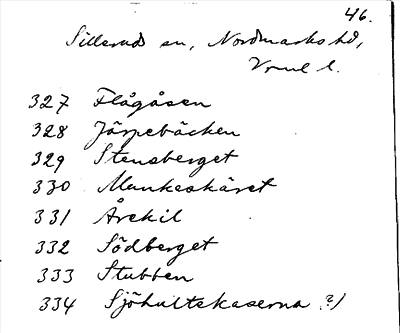 46.
Sillerud sn, Nordmarks hd,
Vrml l.
327 Flågåsen
328 Järpebäcken
329 Stensberget
330 Munkeskäret
331 Årekil
332 Södberget
333 Stubben
334 Sjöhultskaserna ?)